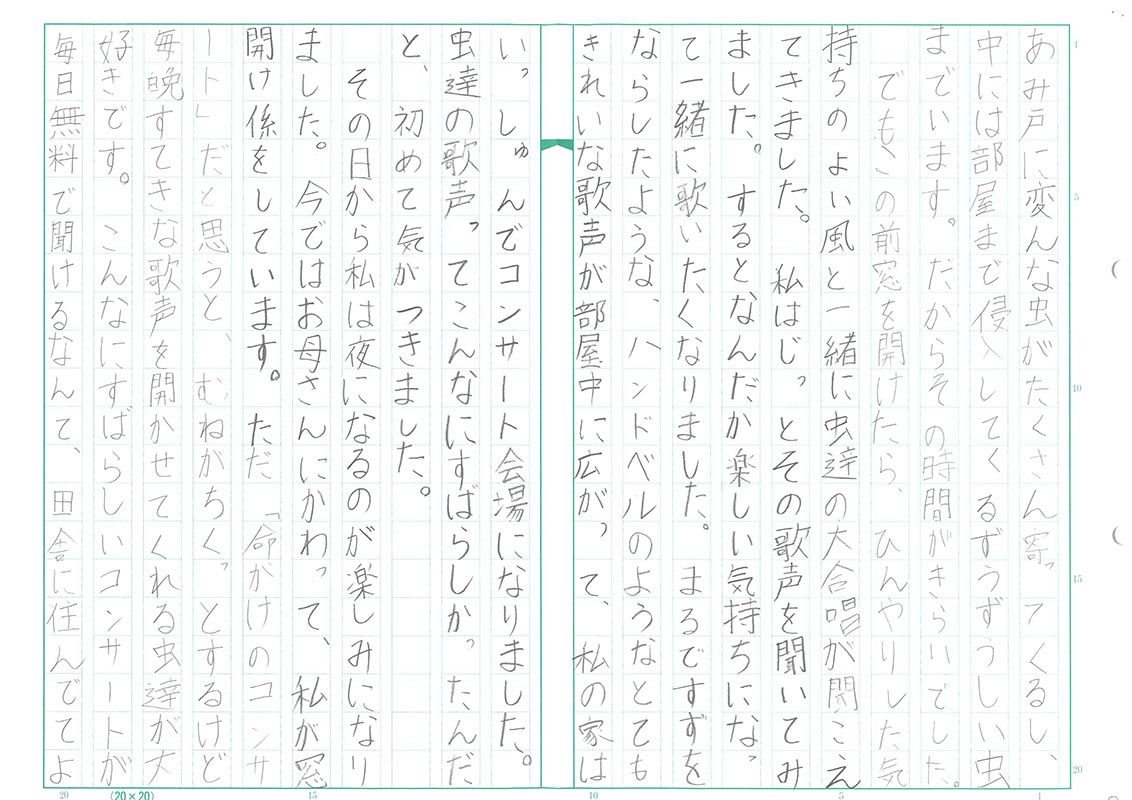 あみ戸に変んな虫がたくさん寄ってくるし、
中には部屋まで侵入してくるずうずうしい虫
までいます。だからその時間がきらいでした。
でもこの前窓を開けたら、ひんやりした気
持ちのよい風と一緒に虫達の大合唱が聞こえ
てきました。私はじっとその歌声を聞いてみ
ました。するとなんだか楽しい気持ちになっ
て一緒に歌いたくなりました。まるですずを
ならしたような、ハンドベルのようなとても
きれいな歌声が部屋中に広がって、私の家は
いっしゅんでコンサート会場になりました。
虫達の歌声ってこんなにすばらしかったんだ
と、初めて気がつきました。
その日から私は夜になるのが楽しみになり
ました。今ではお母さんにかわって、私が窓
開け係をしています。ただ「命がけのコンサ
ート」だと思うと、むねがちくっとするけど
毎晩すてきな歌声を開かせてくれる虫達が大
好きです。こんなにすばらしいコンサートが
毎日無料で聞けるなんて、田舎に住んでてよ
1
5
10
15
20
1
5
10
15
20
(20×20)